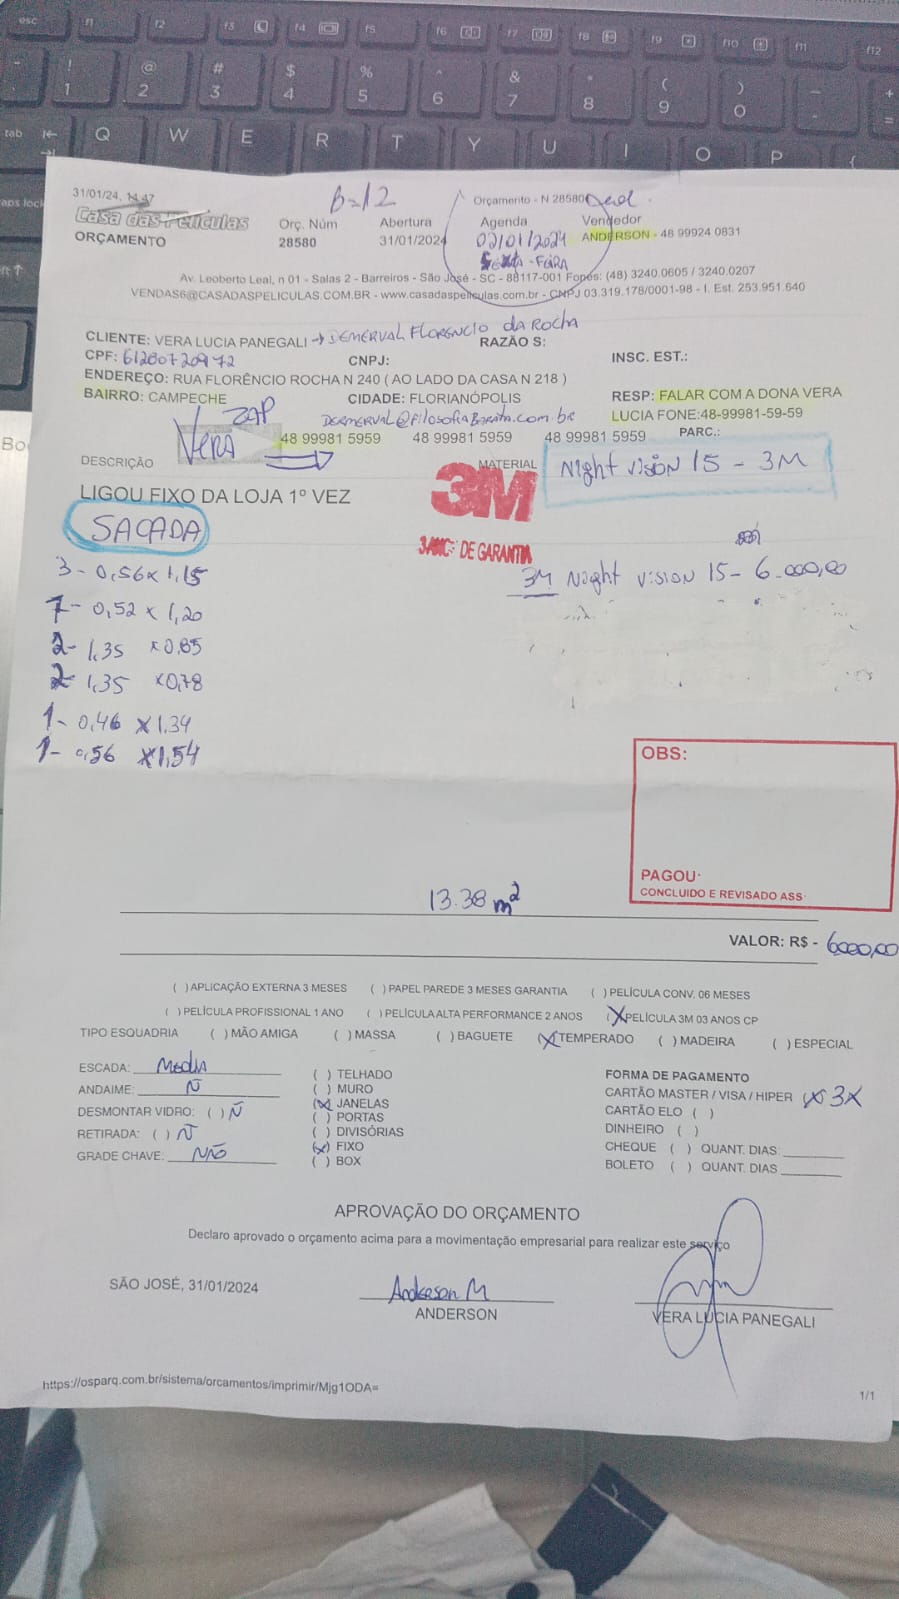 esc f1 f2 f3 f4 f5 f6 f7 f8 f9 f10 f11 f12
! 1 @ 2 # 3 $ 4 % 5 ^ 6 & 7 * 8 ( 9 ) 0 - + =
tab Q W E R T Y U I O P {
aps lock
ft
Bo
31/01/24, 14:47
B=12
Orçamento - N 28580
Casa das Películas
ORÇAMENTO
Orç. Núm
28580
Abertura
31/01/2024
Agenda
02/01/2024
SEXTA-FEIRA
Vendedor
ANDERSON - 48 99924 0831
Av. Leoberto Leal, n 01 - Salas 2 - Barreiros - São José - SC - 88117-001 Fones: (48) 3240.0605 / 3240.0207
VENDAS6@CASADASPELICULAS.COM.BR - www.casadaspeliculas.com.br - CNPJ 03.319.178/0001-98 - I. Est. 253.951.640
CLIENTE: VERA LUCIA PANEGALI → DEMERVAL FLORENCIO DA ROCHA
RAZÃO S:
CPF: 61280720972
CNPJ:
INSC. EST.:
ENDEREÇO: RUA FLORÊNCIO ROCHA N 240 ( AO LADO DA CASA N 218 )
BAIRRO: CAMPECHE
CIDADE: FLORIANÓPOLIS
RESP: FALAR COM A DONA VERA
LUCIA FONE:48-99981-59-59
ZAP
DERMERVAL@FilosofiaBarata.com.br
VERA
48 99981 5959 48 99981 5959 48 99981 5959
PARC.:
DESCRIÇÃO
MATERIAL
Night Vision 15 - 3M
LIGOU FIXO DA LOJA 1º VEZ
3M
3 ANOS DE GARANTIA
SACADA
3 - 0,56 x 1,15
3M Night Vision 15 - 6.000,00
7 - 0,52 x 1,20
2 - 1,35 x 0,85
2 - 1,35 x 0,78
1 - 0,46 x 1,34
1 - 0,56 x 1,54
OBS:
PAGOU:
CONCLUIDO E REVISADO ASS:
13.38 m²
VALOR: R$ - 6000,00
( ) APLICAÇÃO EXTERNA 3 MESES ( ) PAPEL PAREDE 3 MESES GARANTIA ( ) PELÍCULA CONV. 06 MESES
( ) PELÍCULA PROFISSIONAL 1 ANO ( ) PELÍCULA ALTA PERFORMANCE 2 ANOS (X) PELÍCULA 3M 03 ANOS CP
TIPO ESQUADRIA ( ) MÃO AMIGA ( ) MASSA ( ) BAGUETE (X) TEMPERADO ( ) MADEIRA ( ) ESPECIAL
ESCADA: MEDIA
ANDAIME: Ñ
DESMONTAR VIDRO: ( ) Ñ
RETIRADA: ( ) Ñ
GRADE CHAVE: NÃO
( ) TELHADO
( ) MURO
(X) JANELAS
( ) PORTAS
( ) DIVISÓRIAS
(X) FIXO
( ) BOX
FORMA DE PAGAMENTO
CARTÃO MASTER / VISA / HIPER (X) 3X
CARTÃO ELO ( )
DINHEIRO ( )
CHEQUE ( ) QUANT. DIAS:
BOLETO ( ) QUANT. DIAS
APROVAÇÃO DO ORÇAMENTO
Declaro aprovado o orçamento acima para a movimentação empresarial para realizar este serviço
SÃO JOSÉ, 31/01/2024
Anderson M
ANDERSON
VERA LUCIA PANEGALI
https://osparq.com.br/sistema/orcamentos/imprimir/Mjg1ODA=
1/1